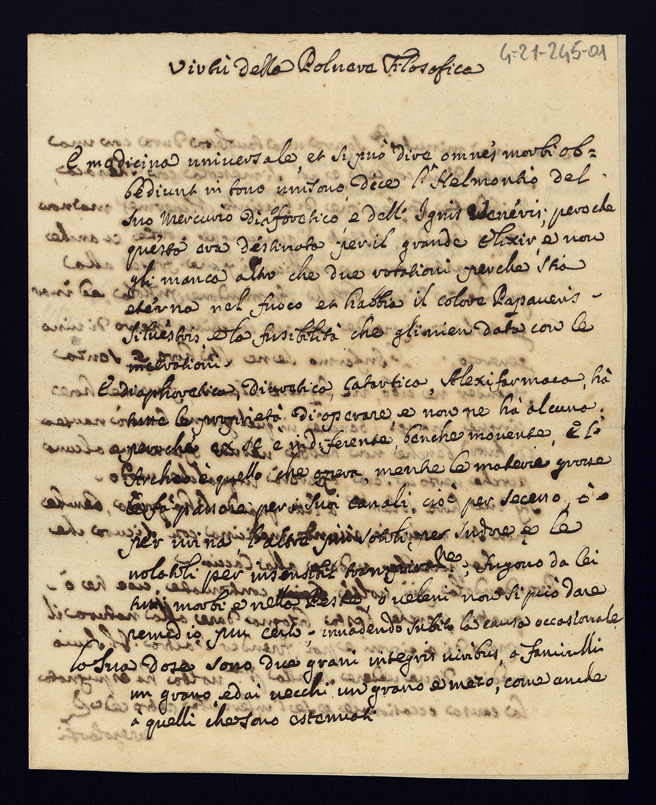 4-21-245-01
Virtù della Poluere Filosofica
E medicina universale, et si può dire omnes morbi ob=
bediunt in tono unisono, dice l'Helmontio del
suo Mercurio Diaforetico, e dell' Ignis Veneris; peroche
questa era destinata per il grande Elixir, e non
gli manca altro che due rotationi perche stia
eterna nel fuoco et habbia il colore Papaveris
silvestris, e la fusibilità che gli vien data con le
E diaphoretica, Diuretica, Catartica, Alexifarmaca, hà
tutte le proprietà di operare e non ne hà alcuna,
peroche ex se è indiferente, benche movente, è l'
Archeo è quello che opera, mentre le materie grosse
le fà passare per suoi canali, cioè per secesso, ò
per urina l'altre più sottili per sudore e le
volatili per insensibil fugono da lei
tutti morbi e nella Peste, ò ueleni non si può dare
remedio più certo, invadendo subito la causa occasionale
la sua Dose sono due grani integris viribus, a fanciulli
un grano, ed ai uecchi un grano e mezo, come anche
a quelli che sono estenuati